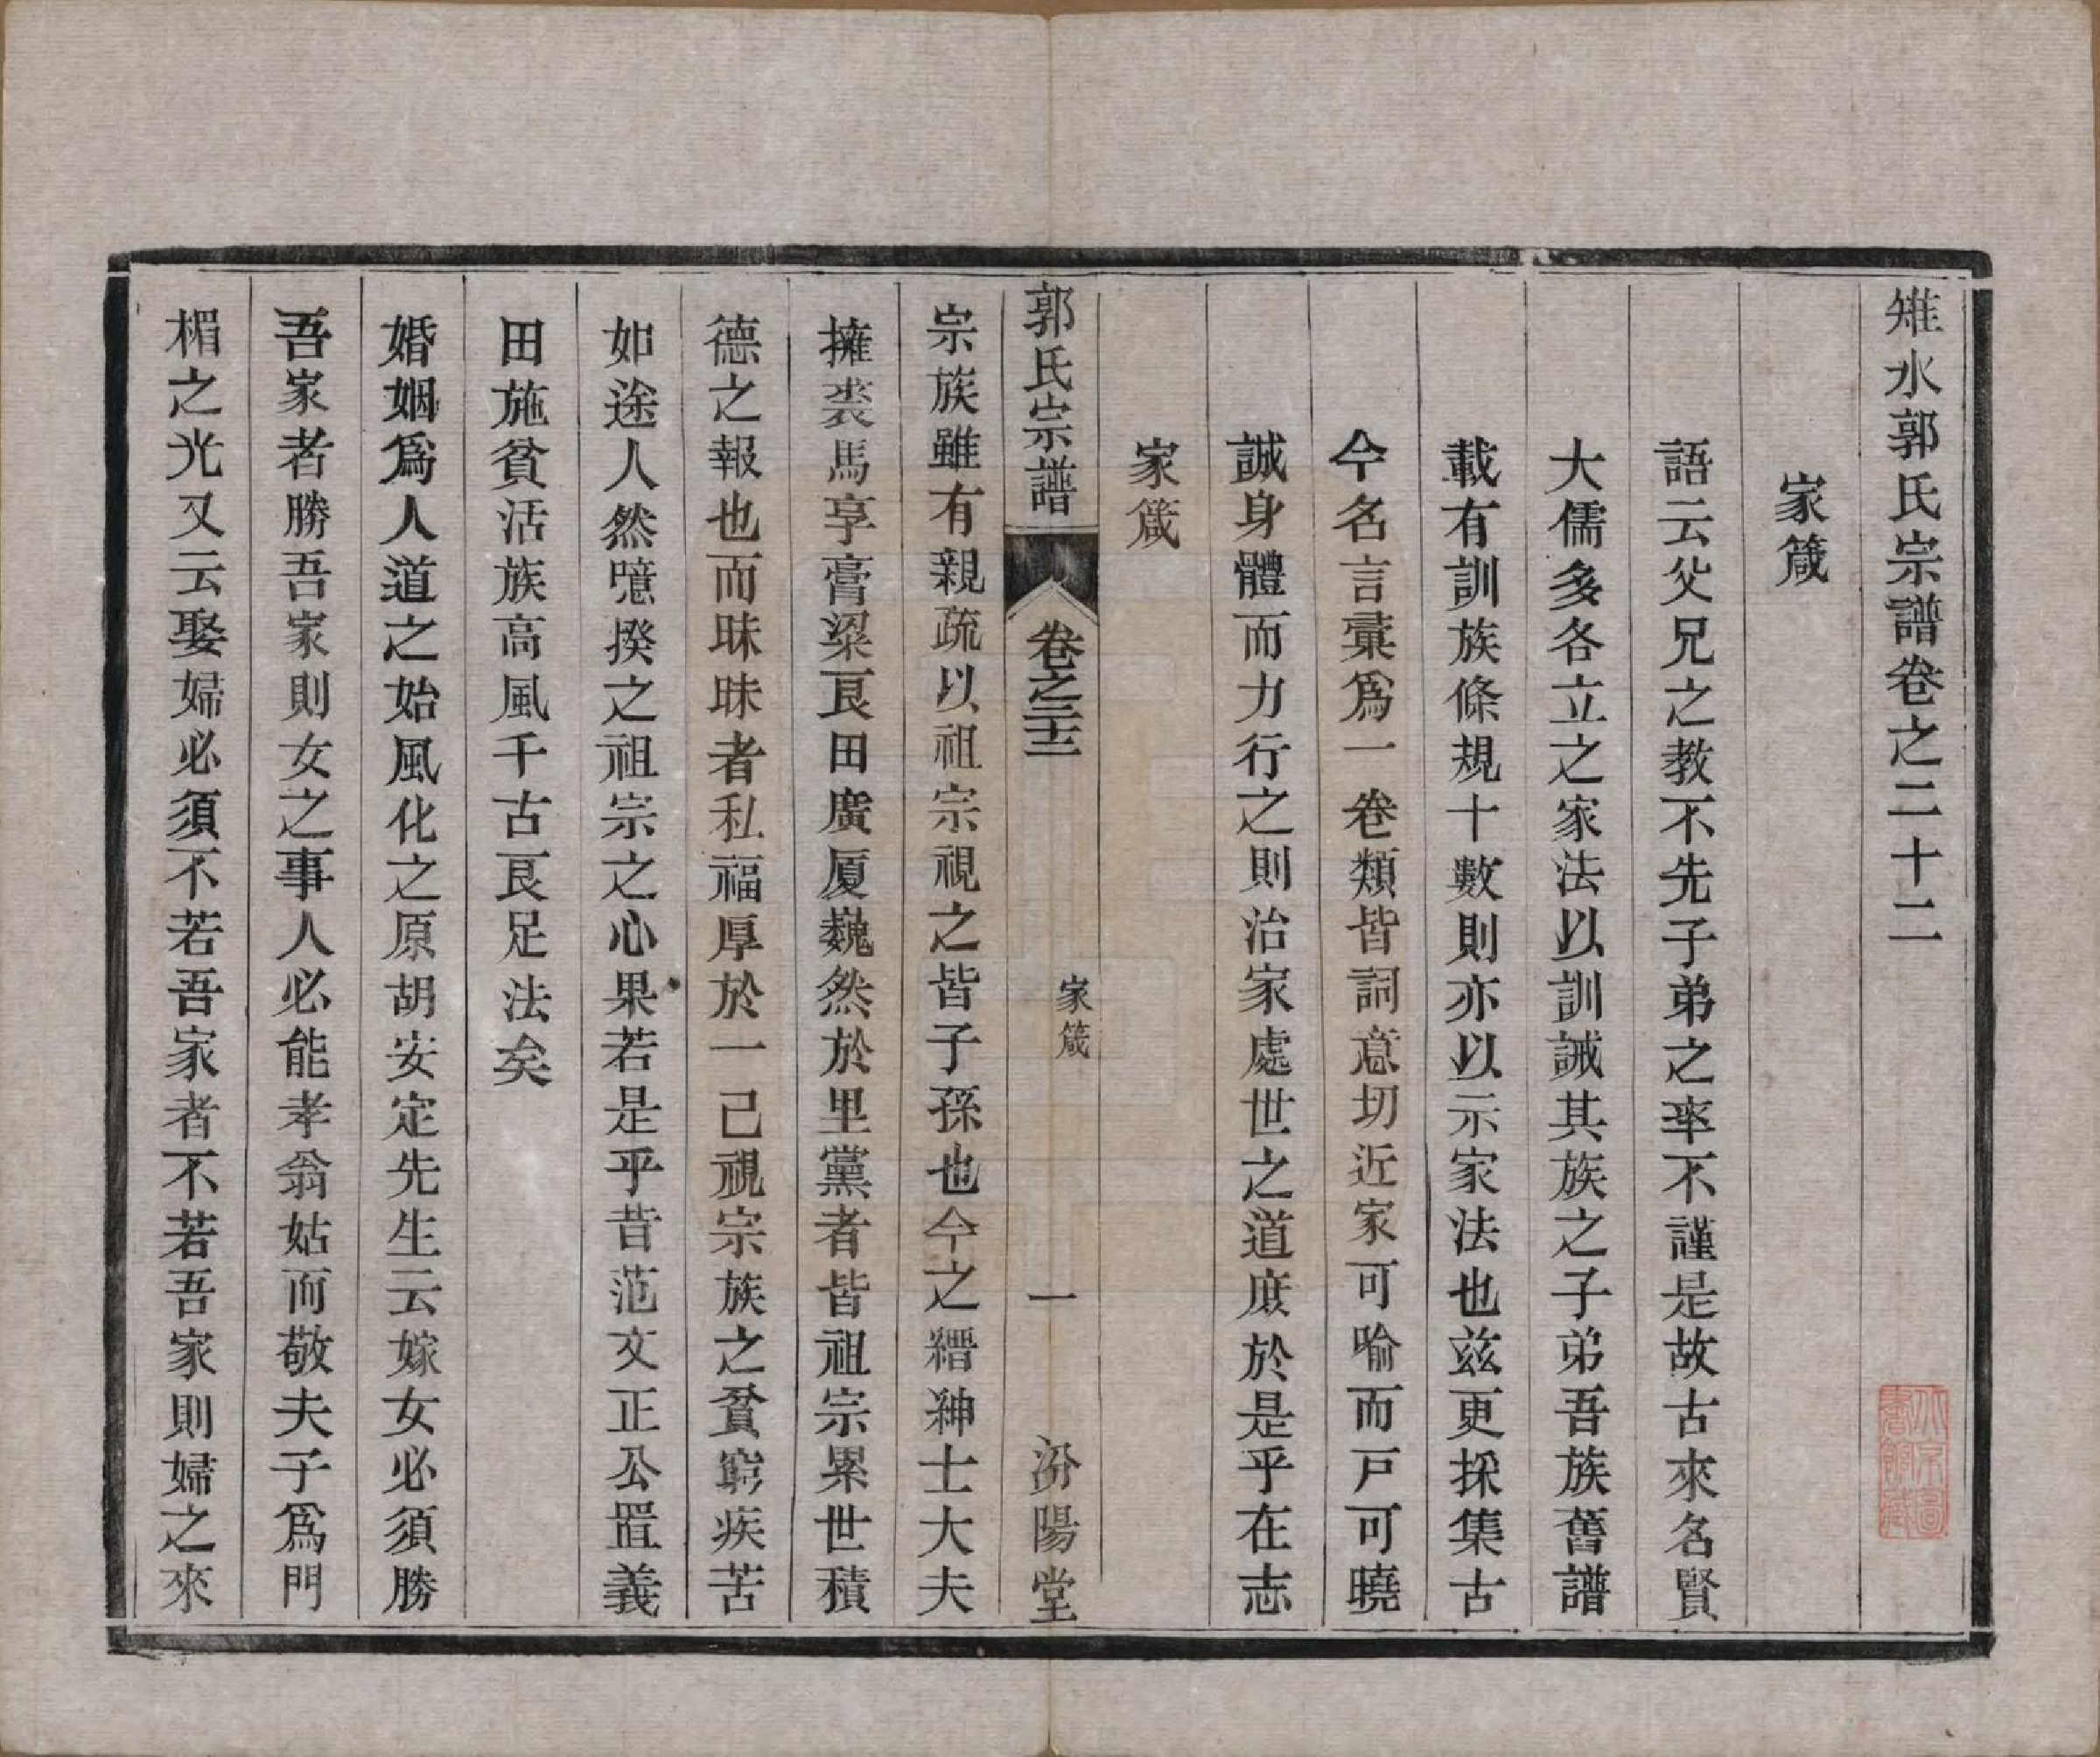 雉水郭氏宗譜卷之二十二
家箴
語云父兄之教不先子弟之率不謹是故古來名賢
大儒多各立之家法以訓誡其族之子弟吾族舊譜
載有訓族條規十數則亦以示家法也兹更採集古
今名言彙爲一卷類皆詞意切近家可喻而戸可曉
誠身體而力行之則治家處世之道庶於是乎在志
家箴
郭氏宗譜
卷之二十二
家箴
一
汾陽堂
宗族雖有親疏以祖宗視之皆子孫也今之縉紳士大夫
擁裘馬享膏粱良田廣厦巍然於里黨者皆祖宗累世積
德之報也而昧昧者私福厚於一己視宗族之貧窮疾苦
如途人然噫揆之祖宗之心果若是乎昔范文正公置義
田施貧活族高風千古良足法矣
婚姻爲人道之始風化之原胡安定先生云嫁女必須勝
吾家者勝吾家則女之事人必能孝翁姑而敬夫子爲門
楣之光又云娶婦必須不若吾家者不若吾家則婦之來
北京圖
書館藏